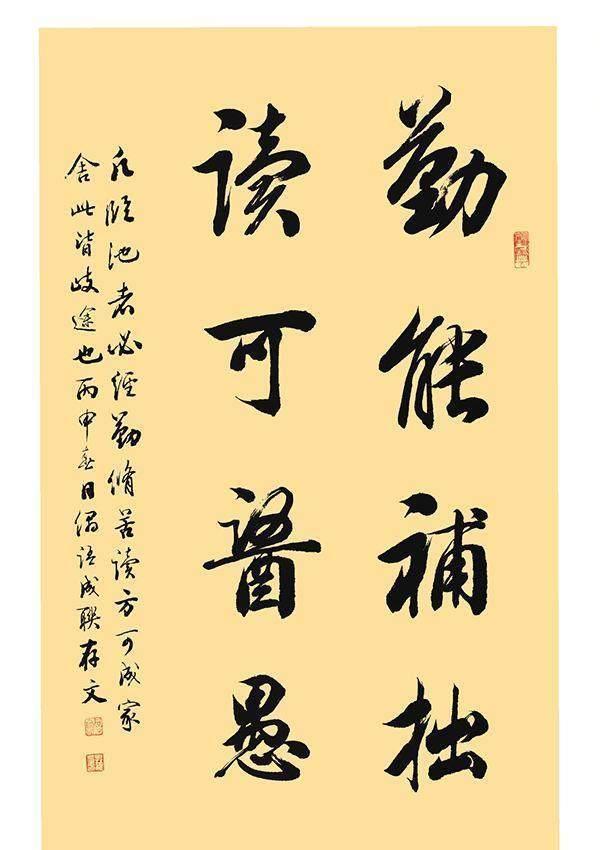 勤能補拙
讀可醫愚
凡臨池者必經勤脩苦讀方可成家
舍此皆歧途也丙申春日偶語成聯存文